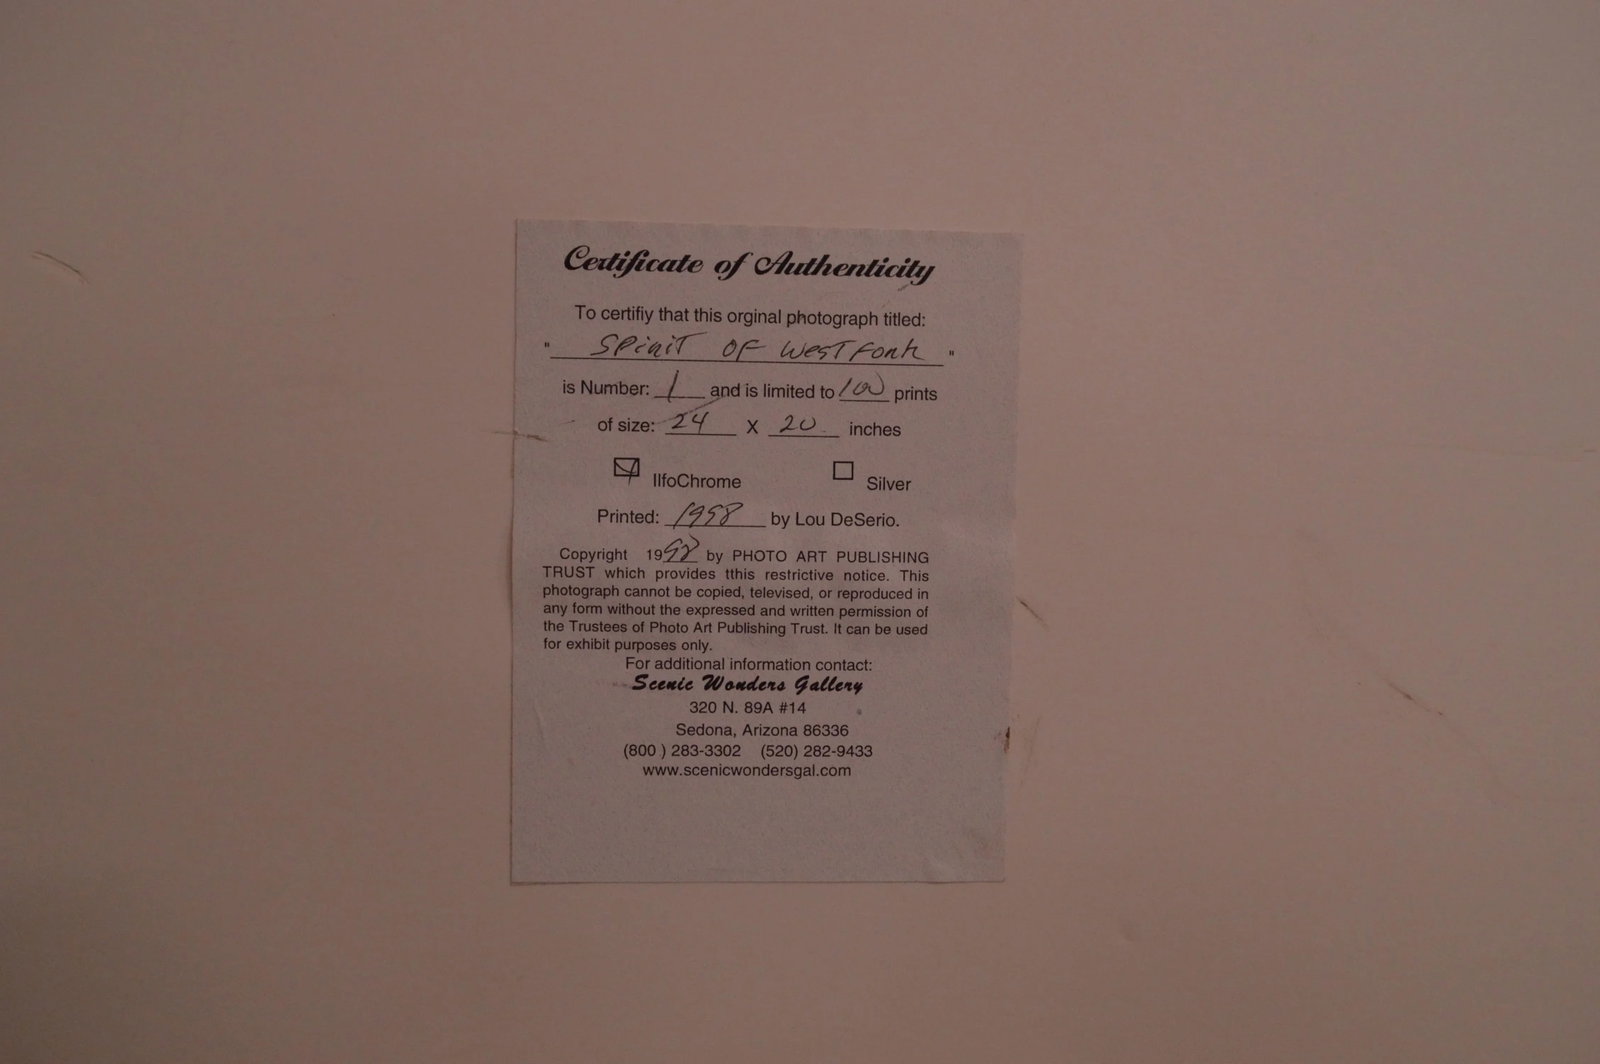 Certificate of Authenticity
To certifiy that this orginal photograph titled:
" SPiRiT OF WeST FoRk "
is Number: 1 and is limited to 100 prints
of size: 24 X 20 inches
IlfoChrome Silver
Printed: 1998 by Lou DeSerio.
Copyright 1998 by PHOTO ART PUBLISHING
TRUST which provides tthis restrictive notice. This
photograph cannot be copied, televised, or reproduced in
any form without the expressed and written permission of
the Trustees of Photo Art Publishing Trust. It can be used
for exhibit purposes only.
For additional information contact:
Scenic Wonders Gallery
320 N. 89A #14
Sedona, Arizona 86336
(800 ) 283-3302 (520) 282-9433
www.scenicwondersgal.com